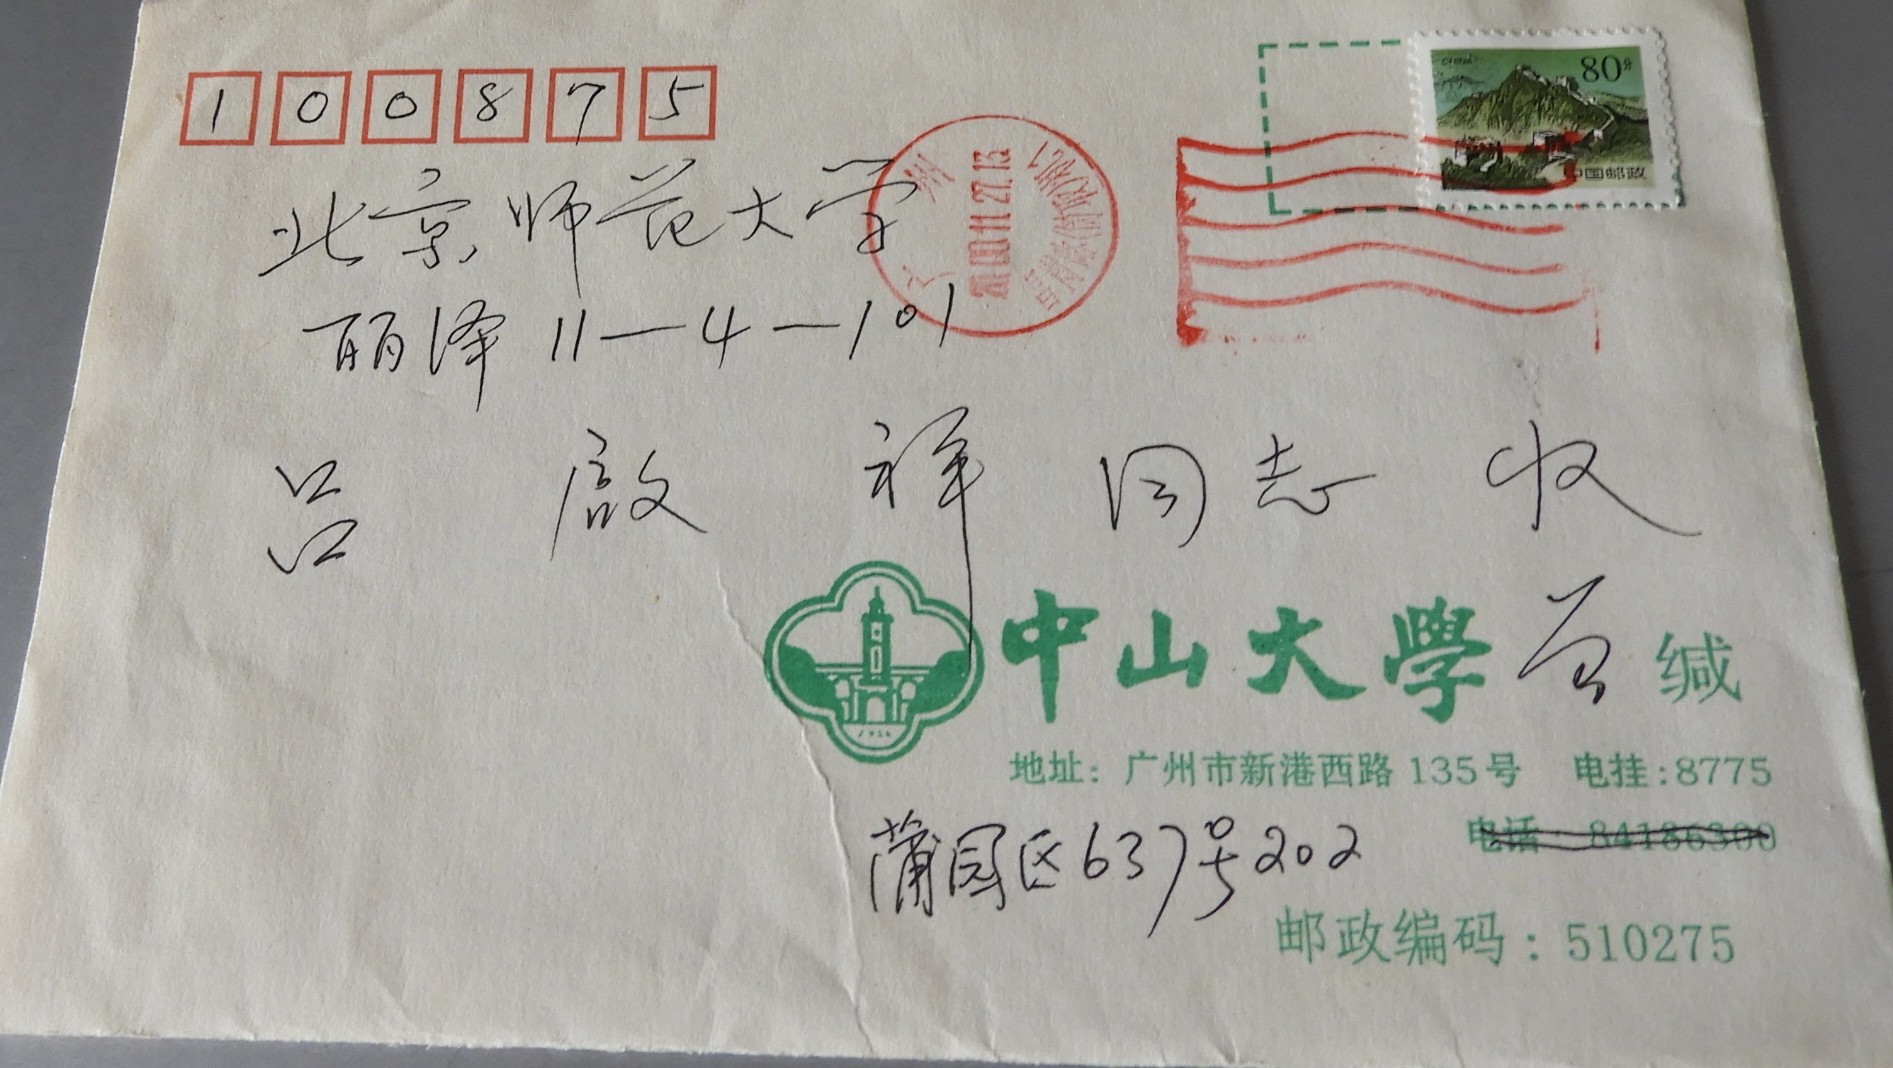 100875
CHINA
80分
中国邮政
北京师范大学
广州
2000.11.27.13
丽泽 11—4—101
吕启祥同志收
中山大學 缄
地址：广州市新港西路 135号 电挂：8775
电话：84186300
蒲园区637号202
邮政编码：510275